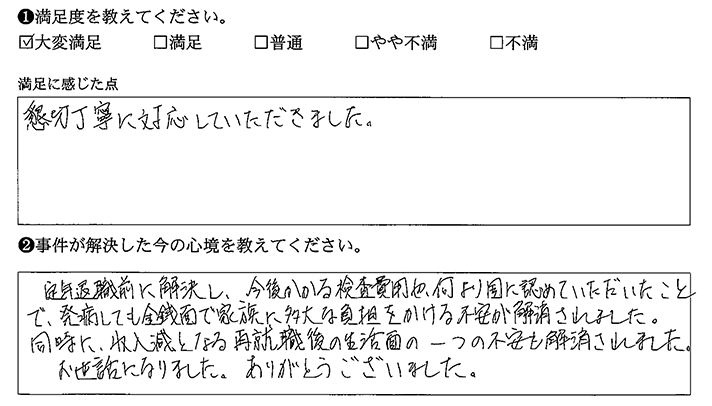 ❶満足度を教えてください。
☑大変満足 □満足 □普通 □やや不満 □不満
満足に感じた点
懇切丁寧に対応していただきました。
❷事件が解決した今の心境を教えてください。
定年退職前に解決し、今後かかる検査費用也、何より国に認めていただいたこと
で、発病しても金銭面で家族に多大な負担をかける不安が解消されました。
同時に、収入減となる再就職後の生活面の一つの不安も解消されました。
お世話になりました。ありがとうございました。